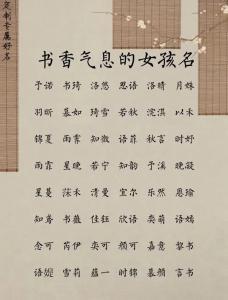 定制专属好名
书香气息的女孩名
于诺 书琦 洛悠 思语 洛晴 月姝
羽昕 慕如 琦雪 若秋 浣淇 以禾
锦夏 雨霏 知微 语菲 秋言 妤兮
雨霏 星晚 若宁 知韵 于溪 晚凝
星蔓 清曼 宜尔 乐然 恩瑜
知鸯 书薇 佳钰 欣语 奕萌 语嫣
念可 芮伊 奕可 颜可 嘉意 黎书
语嫣 雪莉 蕴一 时锦 慕颜 言书